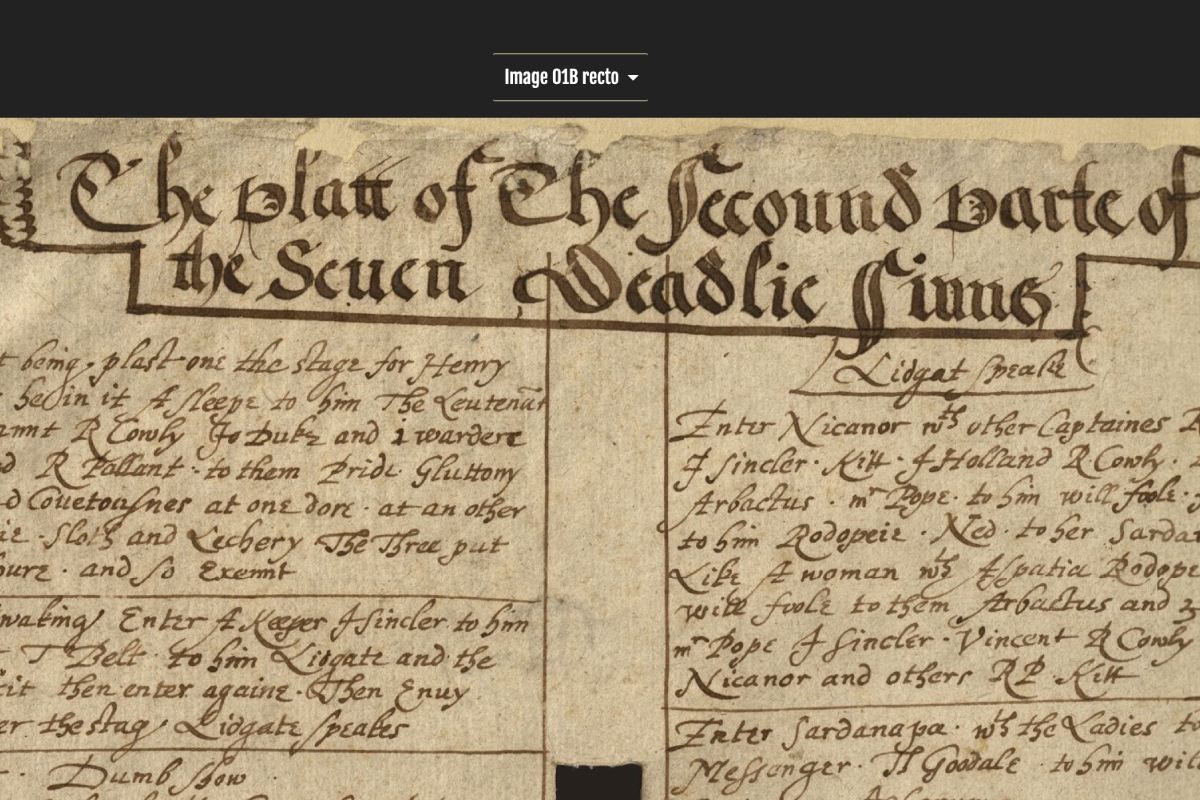 Image 01B recto
The platt of The Secound parte of
the Seuen Deadlie sinns
being plast one the stage for Henry
he in it A sleepe to him The Leutenāt
R Cowly Jo Duke and 1 wardere
R Pallant · to them Pride · Gluttony
Couetousnes at one dore · at an other
· Sloth and Lechery The Three put
· and so Exeunt
waking Enter A Keeper J sincler to him
T Belt · to him Lidgate and the
then enter againe · Then Enuy
the stag Lidgate speakes
· Dumb show ·
Lidgat speake
Enter Nicanor wth other Captaines R
J sincler · Kitt · J Holland R Cowly ·
Arbactus · mr Pope · to him will foole ·
to him Rodopeie · Ned · to her
Like A woman wth Aspatia
will foole to them Arbactus and 3
mr Pope J sincler · Vincent R Cowly
Nicanor and others R P · Kitt
Enter Sardanapa · wth the Ladies to
Messenger · Th Goodale · to him will